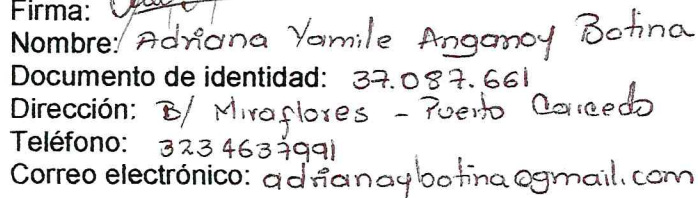 Firma:
Nombre: Adriana Yamile Anganoy Botina
Documento de identidad: 37.087.661
Dirección: B/ Miraflores - Puerto Caicedo
Teléfono: 3234637991
Correo electrónico: adrianaybotina@gmail.com